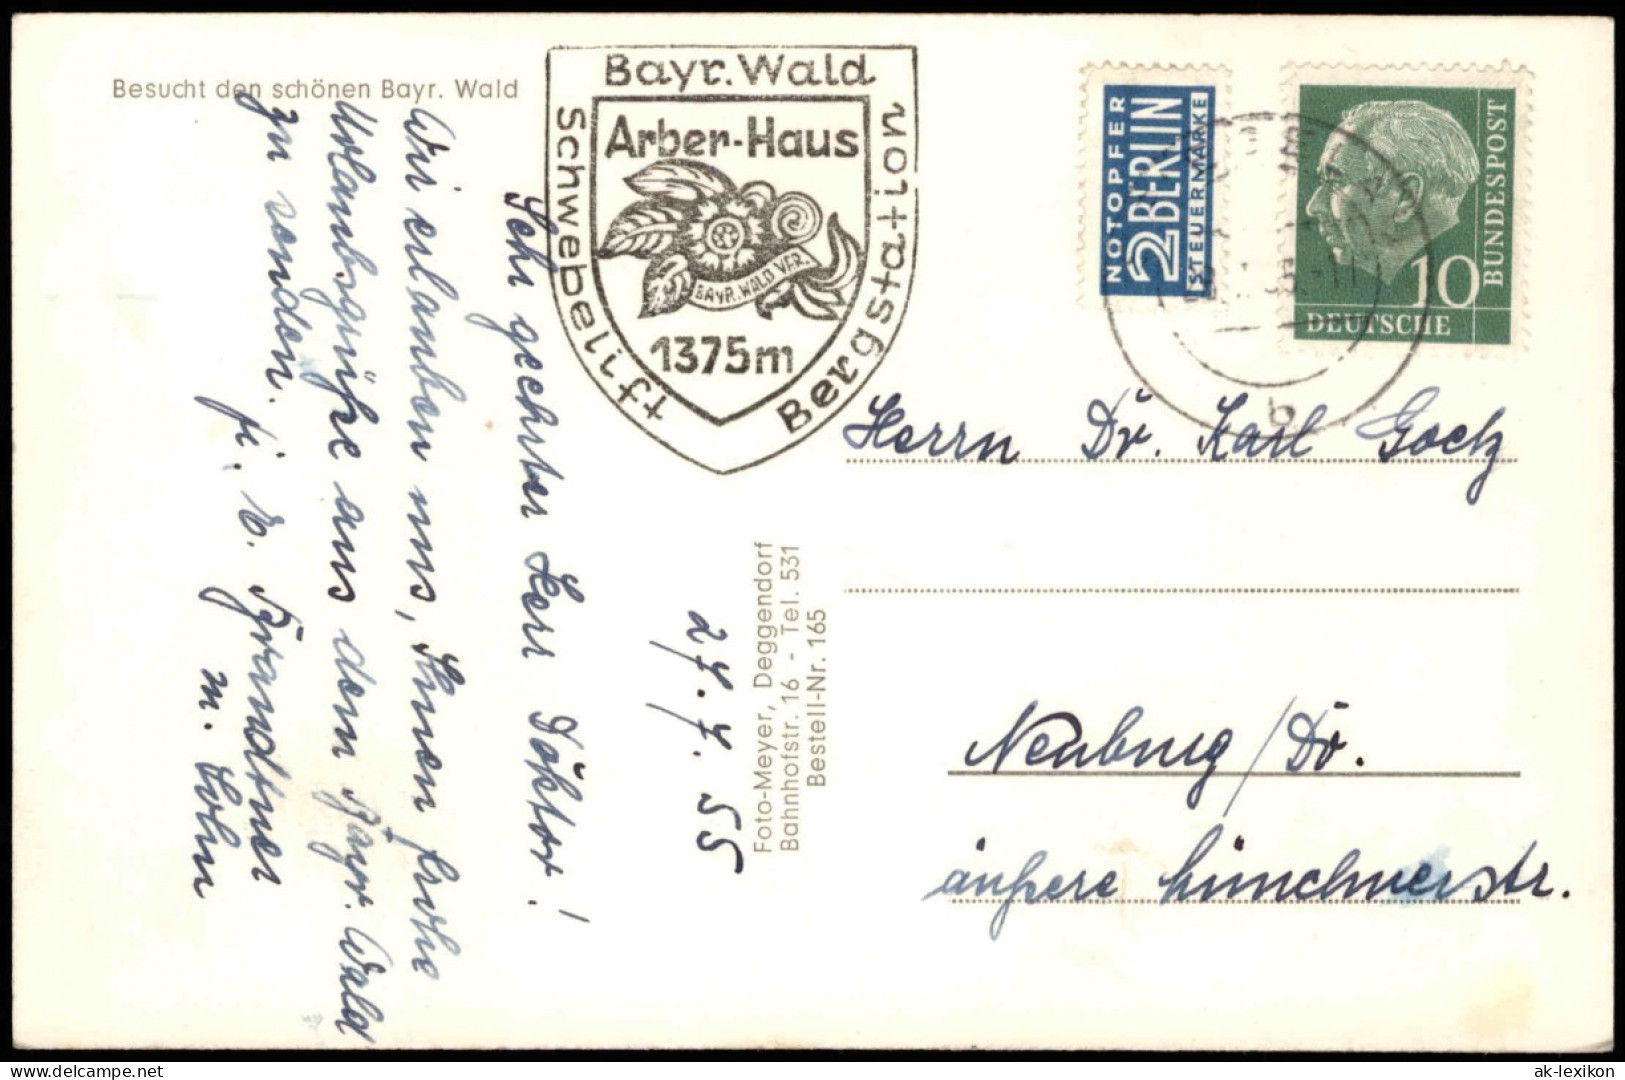 Besucht den schönen Bayr. Wald
Bayr. Wald
Arber-Haus
BAYR. WALD VER.
1375m
Schwebelift
Bergstation
NOTOPFER
2 BERLIN
STEUERMARKE
10
DEUTSCHE
BUNDESPOST
b
27.7.55
Sehr geehrter Herr Doktor!
Wir erlauben uns, Ihnen frohe
Urlaubsgrüße aus dem Bayr. Wald
zu senden.
Brandtner
m. Sohn
Foto-Meyer, Deggendorf
Bahnhofstr. 16 - Tel. 531
Bestell-Nr. 165
Herrn Dr. Karl Goetz
Neuburg/Do.
äußere Münchnerstr.
akpool.de
ak-lexikon